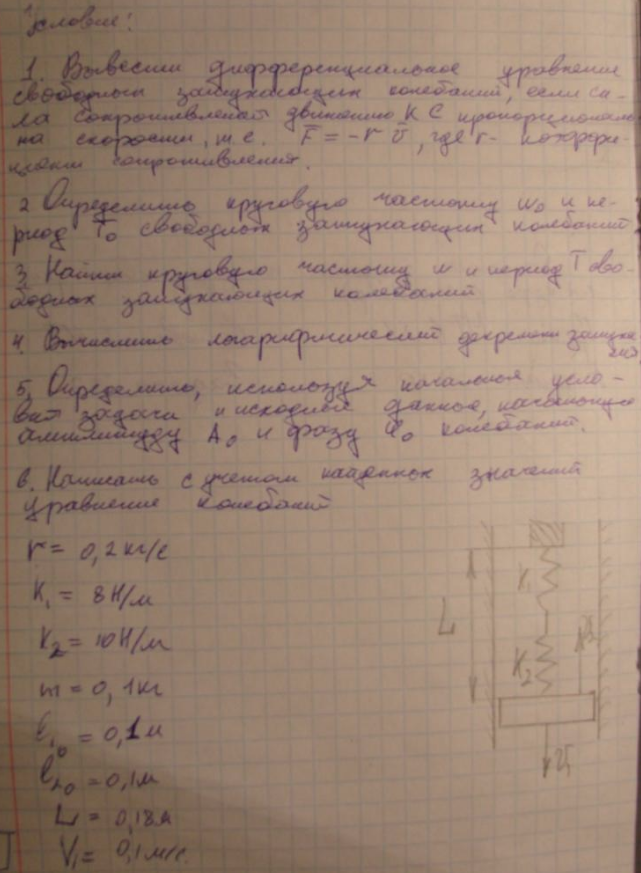 Условие:
1. Вывести дифференциальное уравнение
свободных затухающих колебаний, если си-
ла сопротивления движению КС пропорциональ
на скорости, т.е. F̄ = -r ῡ, где r-
сопротивления.
2 Определить круговую частоту ω₀ и пе-
риод T₀ свободных затухающих колебаний
3. Найти круговую частоту ω и период T сво-
бодных затухающих колебаний
4. Вычислить логарифмический декремент затуха
ний
5. Определить, используя начальные усло-
вия задачи и исходные данные, начальную
амплитуду A₀ и фазу φ₀ колебаний.
6. Написать с учетом найденных значений
уравнение колебаний
r = 0,2 кг/с
K₁ = 8 Н/м
K₂ = 10 Н/м
m = 0,1 кг
ℓ₁₀ = 0,1 м
ℓ₂₀ = 0,1 м
L = 0,18 м
V₁ = 0,1 м/с.
L
K₁
K₂